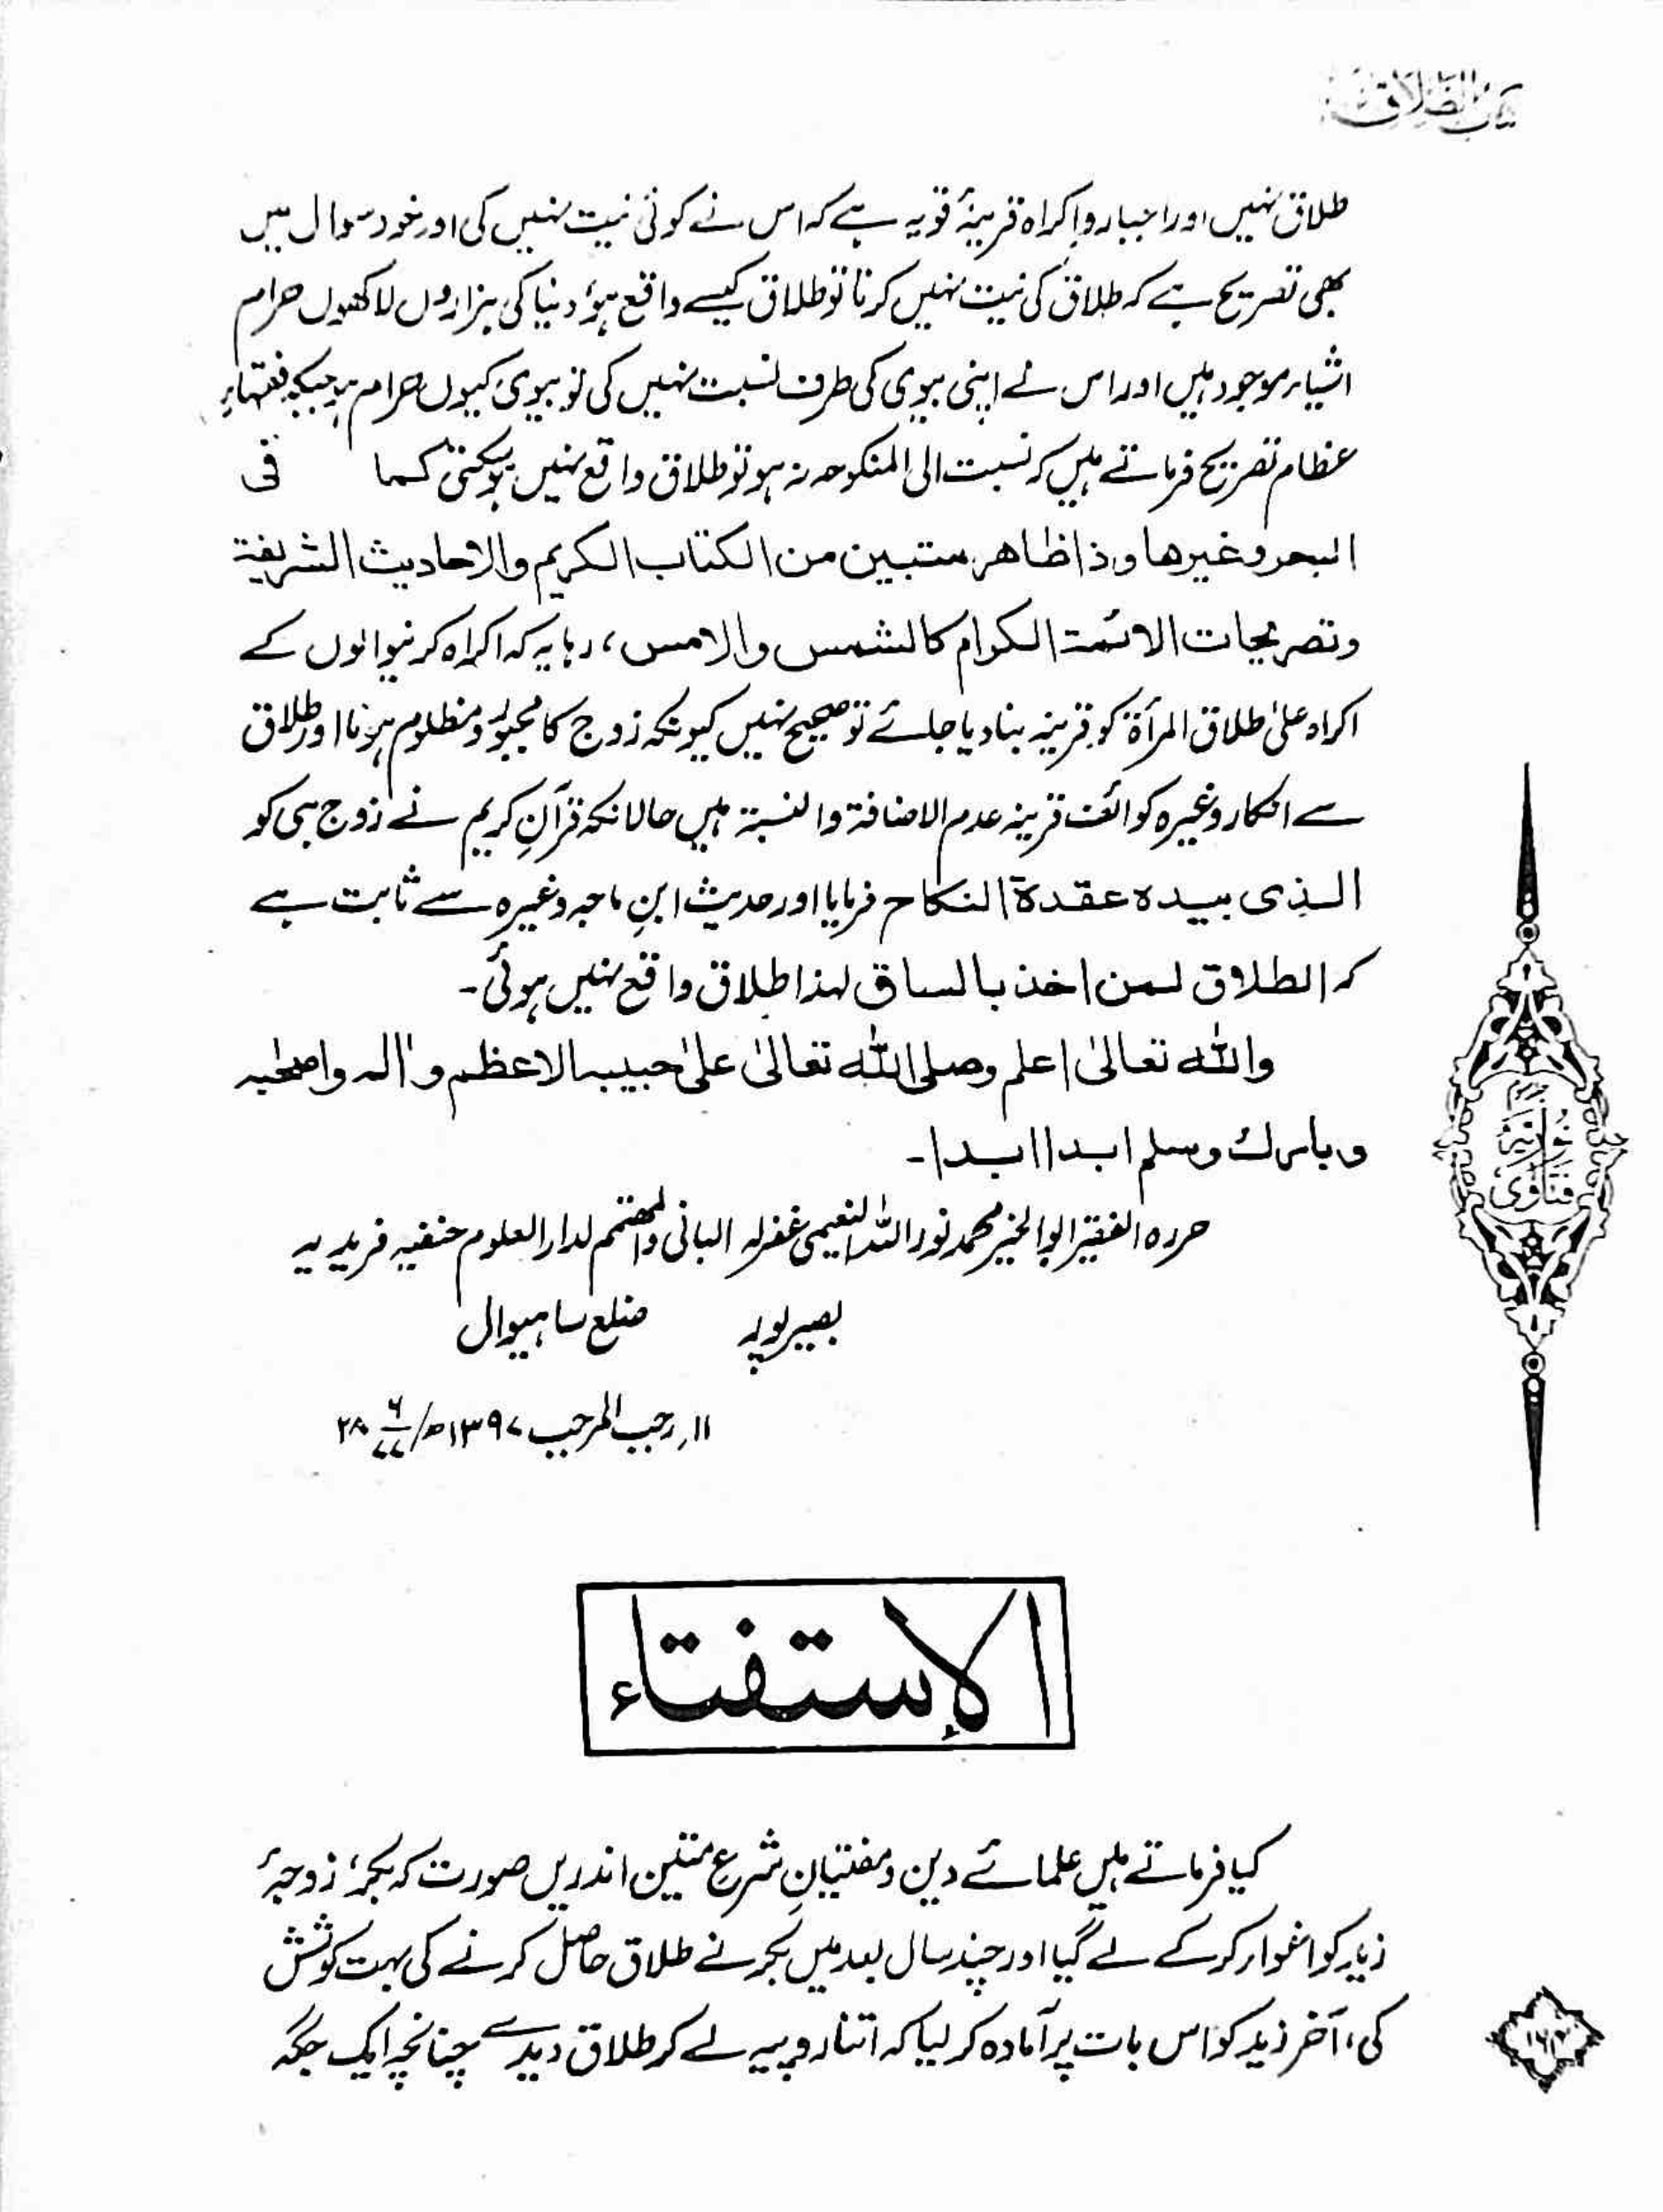 كتاب الطلاق
طلاق نہیں اور اجبار و اکراہ قرینۂ قویہ ہے کہ اس نے کوئی نیت نہیں کی اور خود سوال میں
بھی تصریح ہے کہ طلاق کی نیت نہیں کرتا تو طلاق کیسے واقع ہو، دنیا کی ہزاروں لاکھوں حرام
اشیاء موجود ہیں اور اس نے اپنی بیوی کی طرف نسبت نہیں کی تو بیوی کیوں حرام ہو جبکہ فقہاء
عظام تصریح فرماتے ہیں کہ نسبت الی المنکوحہ نہ ہو تو طلاق واقع نہیں ہو سکتی کما فی
البحر وغیرھا وذا ظاھر ستبین من الکتاب الکریم والاحادیث الشریفۃ
وتصریحات الائمۃ الکرام کالشمس والامس، رہا یہ کہ اکراہ کرنیوالوں کے
اکراہ علیٰ طلاق المرأۃ کو قرینہ بنا دیا جائے تو صحیح نہیں کیونکہ زوج کا مجبور و مظلوم ہونا اور طلاق
سے انکار وغیرہ کوائف قرینہ عدم الاضافۃ والنسبۃ ہیں حالانکہ قرآنِ کریم نے زوج ہی کو
الذی بیدہ عقدۃ النکاح فرمایا اور حدیث ابنِ ماجہ وغیرہ سے ثابت ہے
کہ الطلاق لمن اخذ بالساق لہٰذا طلاق واقع نہیں ہوئی۔
واللہ تعالیٰ اعلم وصلی اللہ تعالیٰ علیٰ حبیبہ الاعظم واٰلہ واصحٰبہ
وبارك وسلم ابدا ابدا۔
حررہ الفقیر ابوالخیر محمد نور اللہ النعیمی غفرلہ البانی والمہتمم لدار العلوم حنفیہ فریدیہ
بصیرپور ضلع ساہیوال
۱۱؍ رجب المرجب ۱۳۹۷ھ / ۲۸ ۶/۷۷
فتاوی نوریہ
الإستفتاء
کیا فرماتے ہیں علمائے دین و مفتیانِ شرع متین اندریں صورت کہ بکر، زوجۂ
زید کو اغوار کر کے لے گیا اور چند سال بعد میں بکر نے طلاق حاصل کرنے کی بہت کوشش
کی، آخر زید کو اس بات پر آمادہ کر لیا کہ اتنا روپیہ لے کر طلاق دیدے چنانچہ ایک جگہ